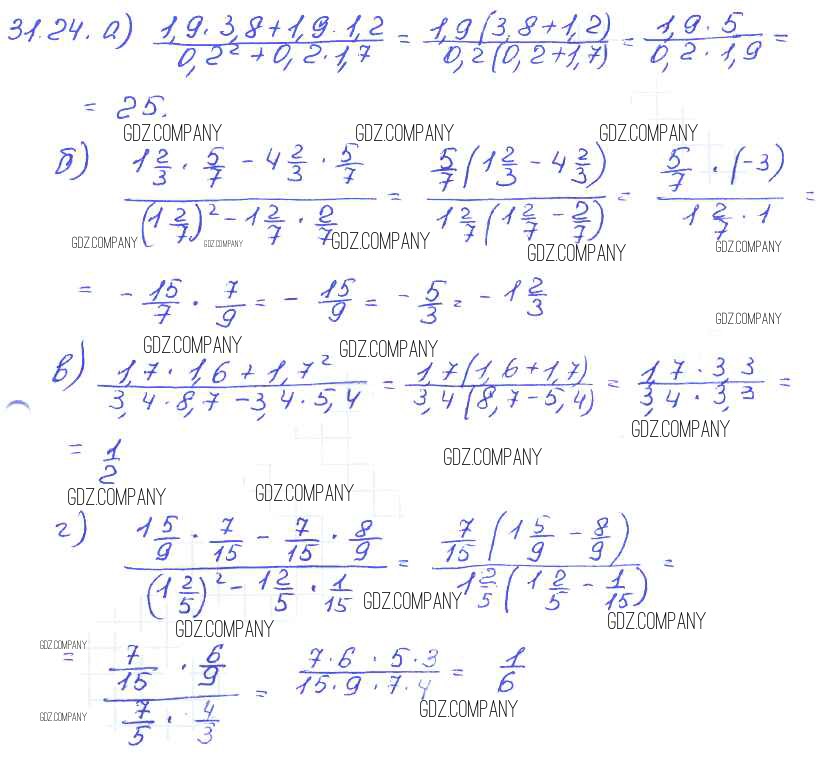 31.24. а) (1,9 · 3,8 + 1,9 · 1,2)/(0,2² + 0,2 · 1,7) = (1,9(3,8 + 1,2))/(0,2(0,2 + 1,7)) = (1,9 · 5)/(0,2 · 1,9) =
= 25.
GDZ.COMPANY GDZ.COMPANY GDZ.COMPANY
б) (1 2/3 · 5/7 − 4 2/3 · 5/7)/((1 2/7)² − 1 2/7 · 2/7) = (5/7(1 2/3 − 4 2/3))/(1 2/7(1 2/7 − 2/7)) = (5/7 · (−3))/(1 2/7 · 1) =
GDZ.COMPANY GDZ.COMPANY GDZ.COMPANY GDZ.COMPANY GDZ.COMPANY
= − 15/7 · 7/9 = − 15/9 = − 5/3 = − 1 2/3
GDZ.COMPANY
GDZ.COMPANY GDZ.COMPANY
в) (1,7 · 1,6 + 1,7²)/(3,4 · 8,7 − 3,4 · 5,4) = (1,7(1,6 + 1,7))/(3,4(8,7 − 5,4)) = (1,7 · 3,3)/(3,4 · 3,3) =
GDZ.COMPANY
= 1/2
GDZ.COMPANY
GDZ.COMPANY GDZ.COMPANY
г) (1 5/9 · 7/15 − 7/15 · 8/9)/((1 2/5)² − 1 2/5 · 1/15) = (7/15(1 5/9 − 8/9))/(1 2/5(1 2/5 − 1/15)) =
GDZ.COMPANY
GDZ.COMPANY GDZ.COMPANY
GDZ.COMPANY
= (7/15 · 6/9)/(7/5 · 4/3) = (7 · 6 · 5 · 3)/(15 · 9 · 7 · 4) = 1/6
GDZ.COMPANY GDZ.COMPANY